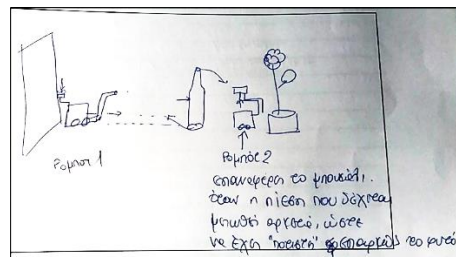 Ρομποτ 1
Ρομπότ 2
επαναφέρει το μπουκάλι,
όταν η πίεση που δέχεται
μειωθεί αρκετά, ώστε
να έχει "ποτιστεί" επαρκώς το φυτό